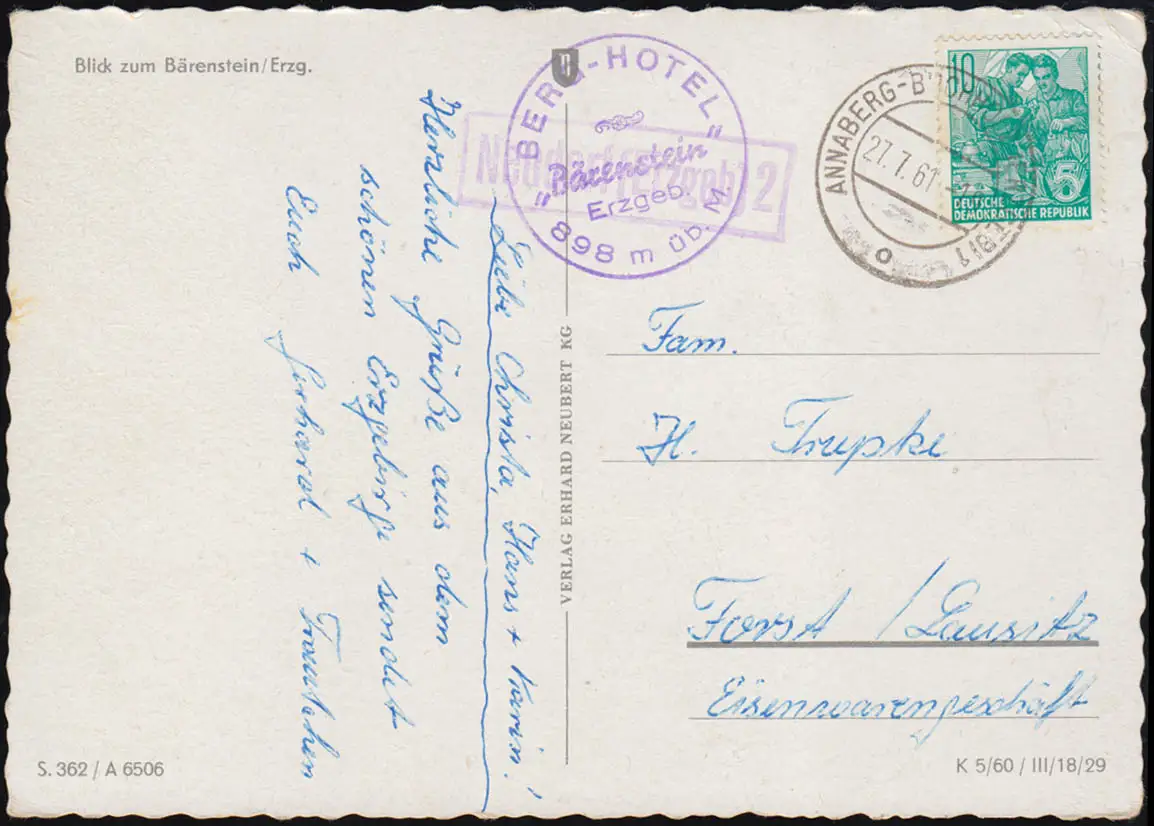 Blick zum Bärenstein/Erzg.
"BERG-HOTEL"
"Bärenstein"
Erzgeb.
898 m üb. M.
Neudorf (Erzgeb) 2
ANNABERG-B
27.7.61
10
5
DEUTSCHE
DEMOKRATISCHE REPUBLIK
Liebe Christa, Hans + Karin!
Herzliche Grüße aus dem
schönen Erzgebirge sendet
Euch Gerhard + Trautchen
VERLAG ERHARD NEUBERT KG
Fam.
H. Trupke
Forst / Lausitz
Eisenwarengeschäft
S. 362 / A 6506
K 5/60 / III/18/29